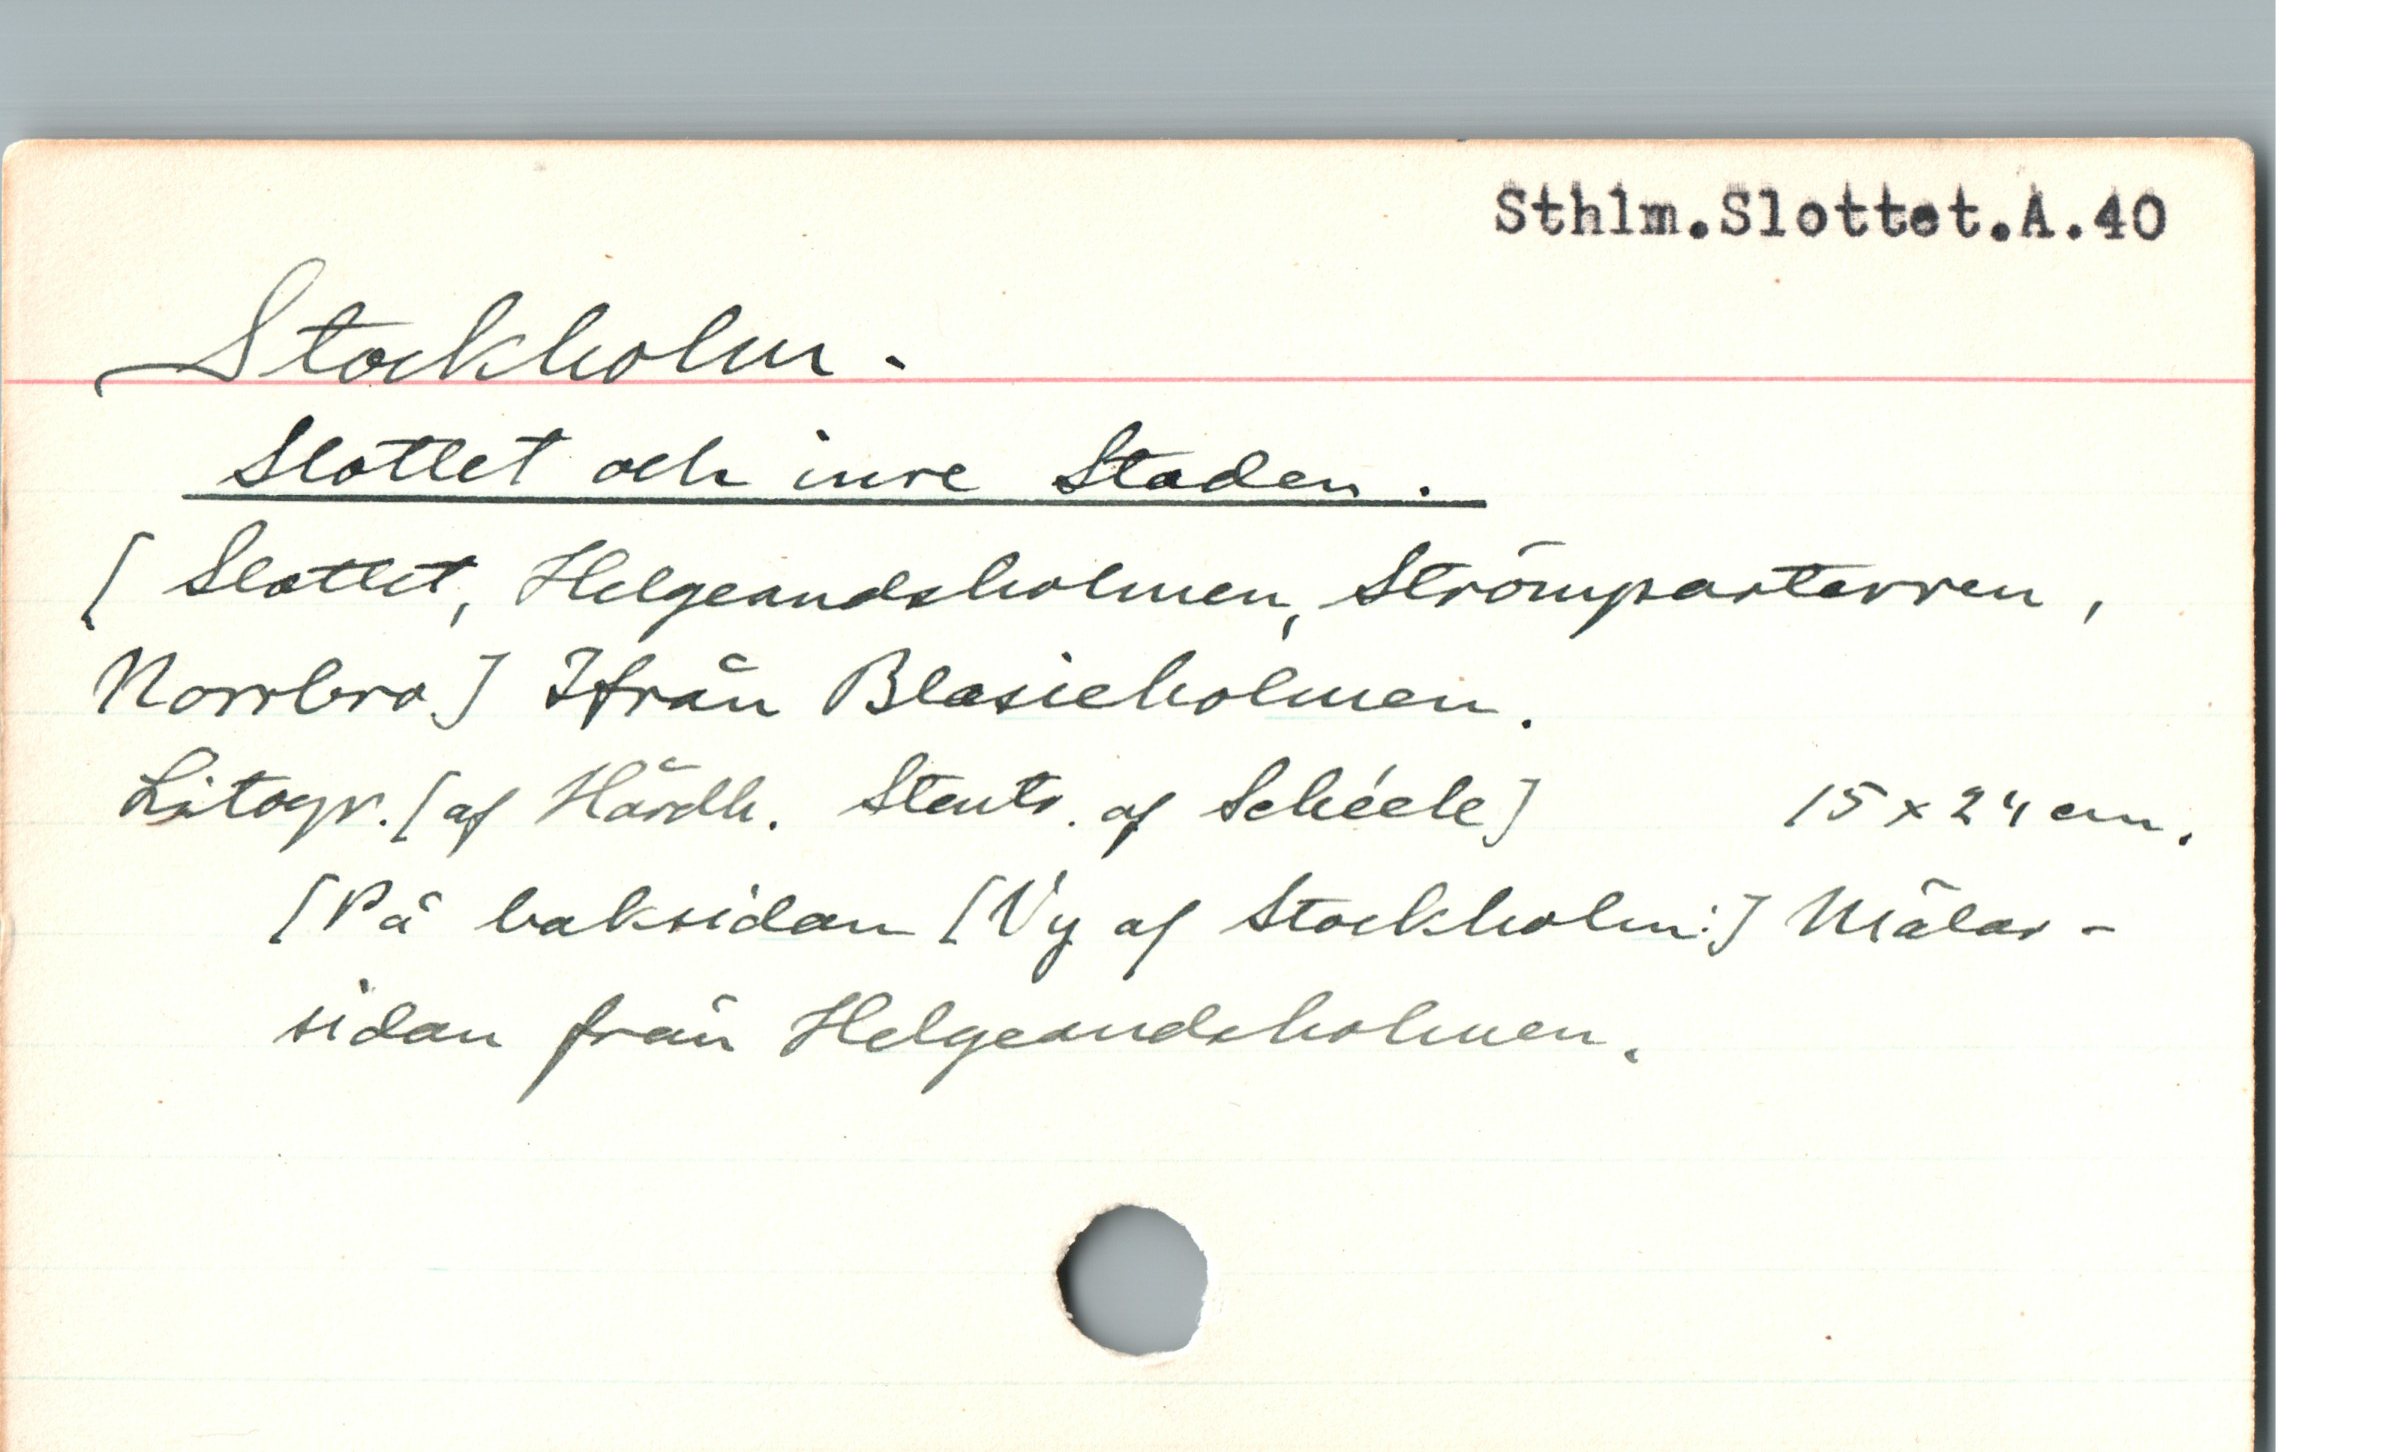 Sthlm.Slottet.A.40
Stockholm.
Slottet och inre Staden.
[Slottet, Helgeandsholmen, Strömparterren,
Norrbro] Ifrån Blasieholmen.
Litogr. [af Hårdh. Stentr. af Schéele] 15 x 24 cm.
[På baksidan [Vy af Stockholm:] Mälar-
sidan från Helgeandsholmen.